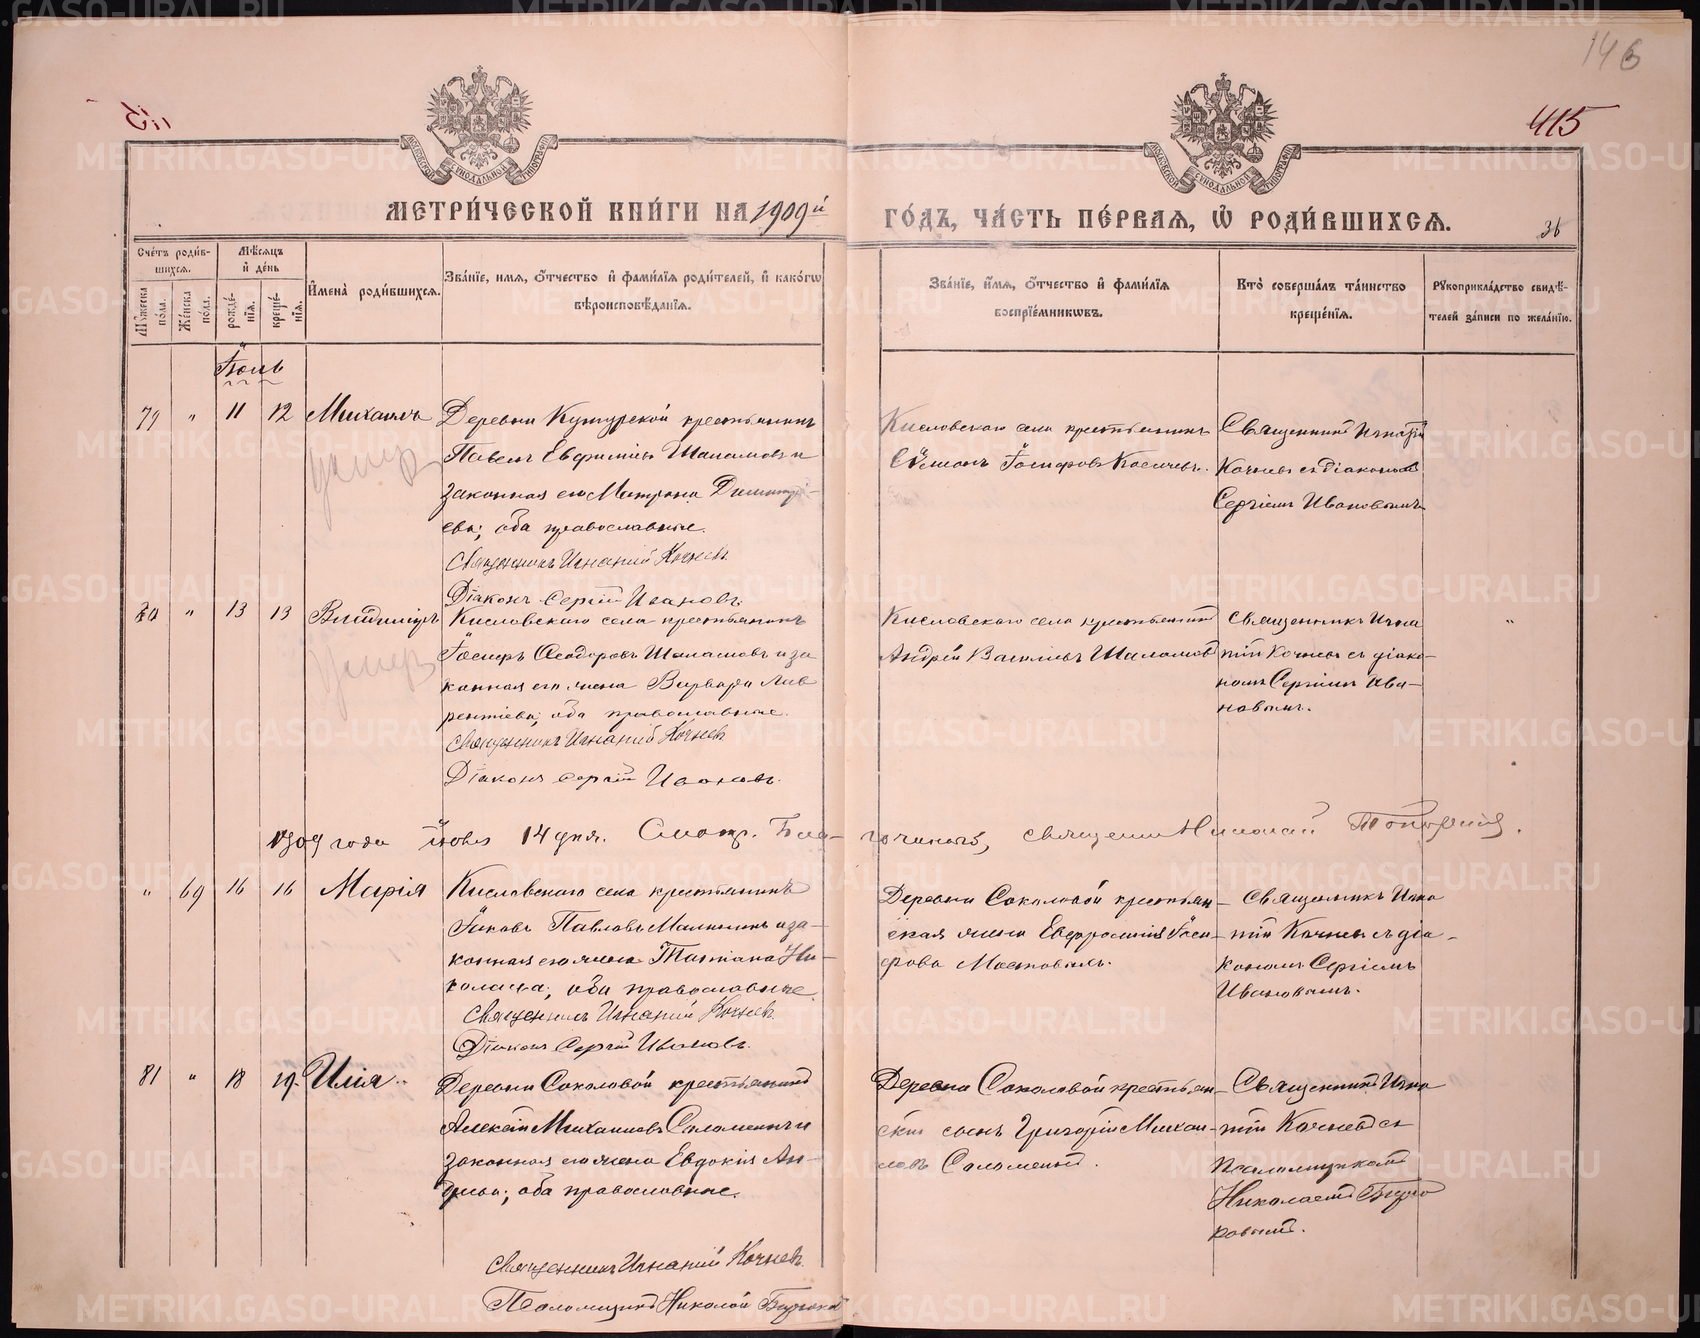 146
415
МОСКОВСКОЙ СѴНОДАЛЬНОЙ ТИПОГРАФІИ
МОСКОВСКОЙ СѴНОДАЛЬНОЙ ТИПОГРАФІИ
МЕТРИ́ЧЕСКОЙ КНИ́ГИ НА 1909й ГО́ДЪ, ЧА́СТЬ ПЕ́РВАЯ, Ѡ҆ РОДИ́ВШИХСЯ.
36
Сче́тъ роди́в-
шихся.
Му́жеска по́ла.
Же́нска по́ла.
Мѣ́сяцъ и҆ де́нь
рожде́-нїя.
креще́-нїя.
И҆мена̀ роди́вшихся.
Зва́нїе, имя, ѻ҆́тчество и҆ фами́лїя роди́телей, и҆ како́гѡ
вѣроисповѣ́данїя.
Зва́нїе, и҆́мя, ѻ҆́тчество и҆ фами́лїя
воспрїе́мникѡвъ.
Кто̀ соверша́лъ та́инство
креще́нїя.
Рꙋкоприкла́дство свидѣ́-
телей за́писи по жела́нїю.
Іюль
79 " 11 12 Михаилъ
Деревни Кутурской крестьянинъ
Павелъ Евфиміевъ Шаламовъ и
законная его Матрона Димитрі-
ева; оба православные.
Священникъ Игнатій Кочневъ.
Діаконъ Сергій Ивановъ.
Кисловскаго села крестьянинъ
Сѵмеонъ Іосифовъ
Священникъ Игнатій
Кочневъ съ діакономъ
Сергіемъ Ивановымъ
умеръ
80 " 13 13 Владиміръ
Кисловскаго села крестьянинъ
Іосифъ Ѳеодоровъ Шаламовъ и за
конная его жена Варвара Лав
рентіева; оба православные.
Священникъ Игнатій Кочневъ
Діаконъ Сергій Ивановъ.
Кисловскаго села крестьянинъ
Андрей Василіевъ Шаламовъ
Священникъ Игна
тій Кочневъ съ діако-
номъ Сергіемъ Ива-
новымъ.
"
умеръ
1909 года іюля 14 дня. Смотр. Бла-гочинный, священникъ Николай Топорковъ.
" 69 16 16 Марія
Кисловскаго села крестьянинъ
Іаковъ Павловъ Малининъ и за-
конная его жена Татіана Ни-
колаева; оба православные.
Священникъ Игнатій Кочневъ.
Діаконъ Сергій Ивановъ.
Деревни Соколовой крестьян-
ская жена Евфросинія Іоси-
фова
Священникъ Игна
тій Кочневъ съ діа-
кономъ Сергіемъ
Ивановымъ.
81 " 18 19 Илія
Деревни Соколовой крестьянинъ
Алексій Михаиловъ Саломеинъ и
законная его жена Евдокія Ан-
дреева; оба православные.
Священникъ Игнатій Кочневъ.
Псаломщикъ Николай
Деревни Соколовой крестьян-
скій сынъ Григорій Михаи-
ловъ Саломеинъ.
Священникъ Игна
тій Кочневъ съ
псаломщикомъ
Николаемъ
METRIKI.GASO-URAL.RU